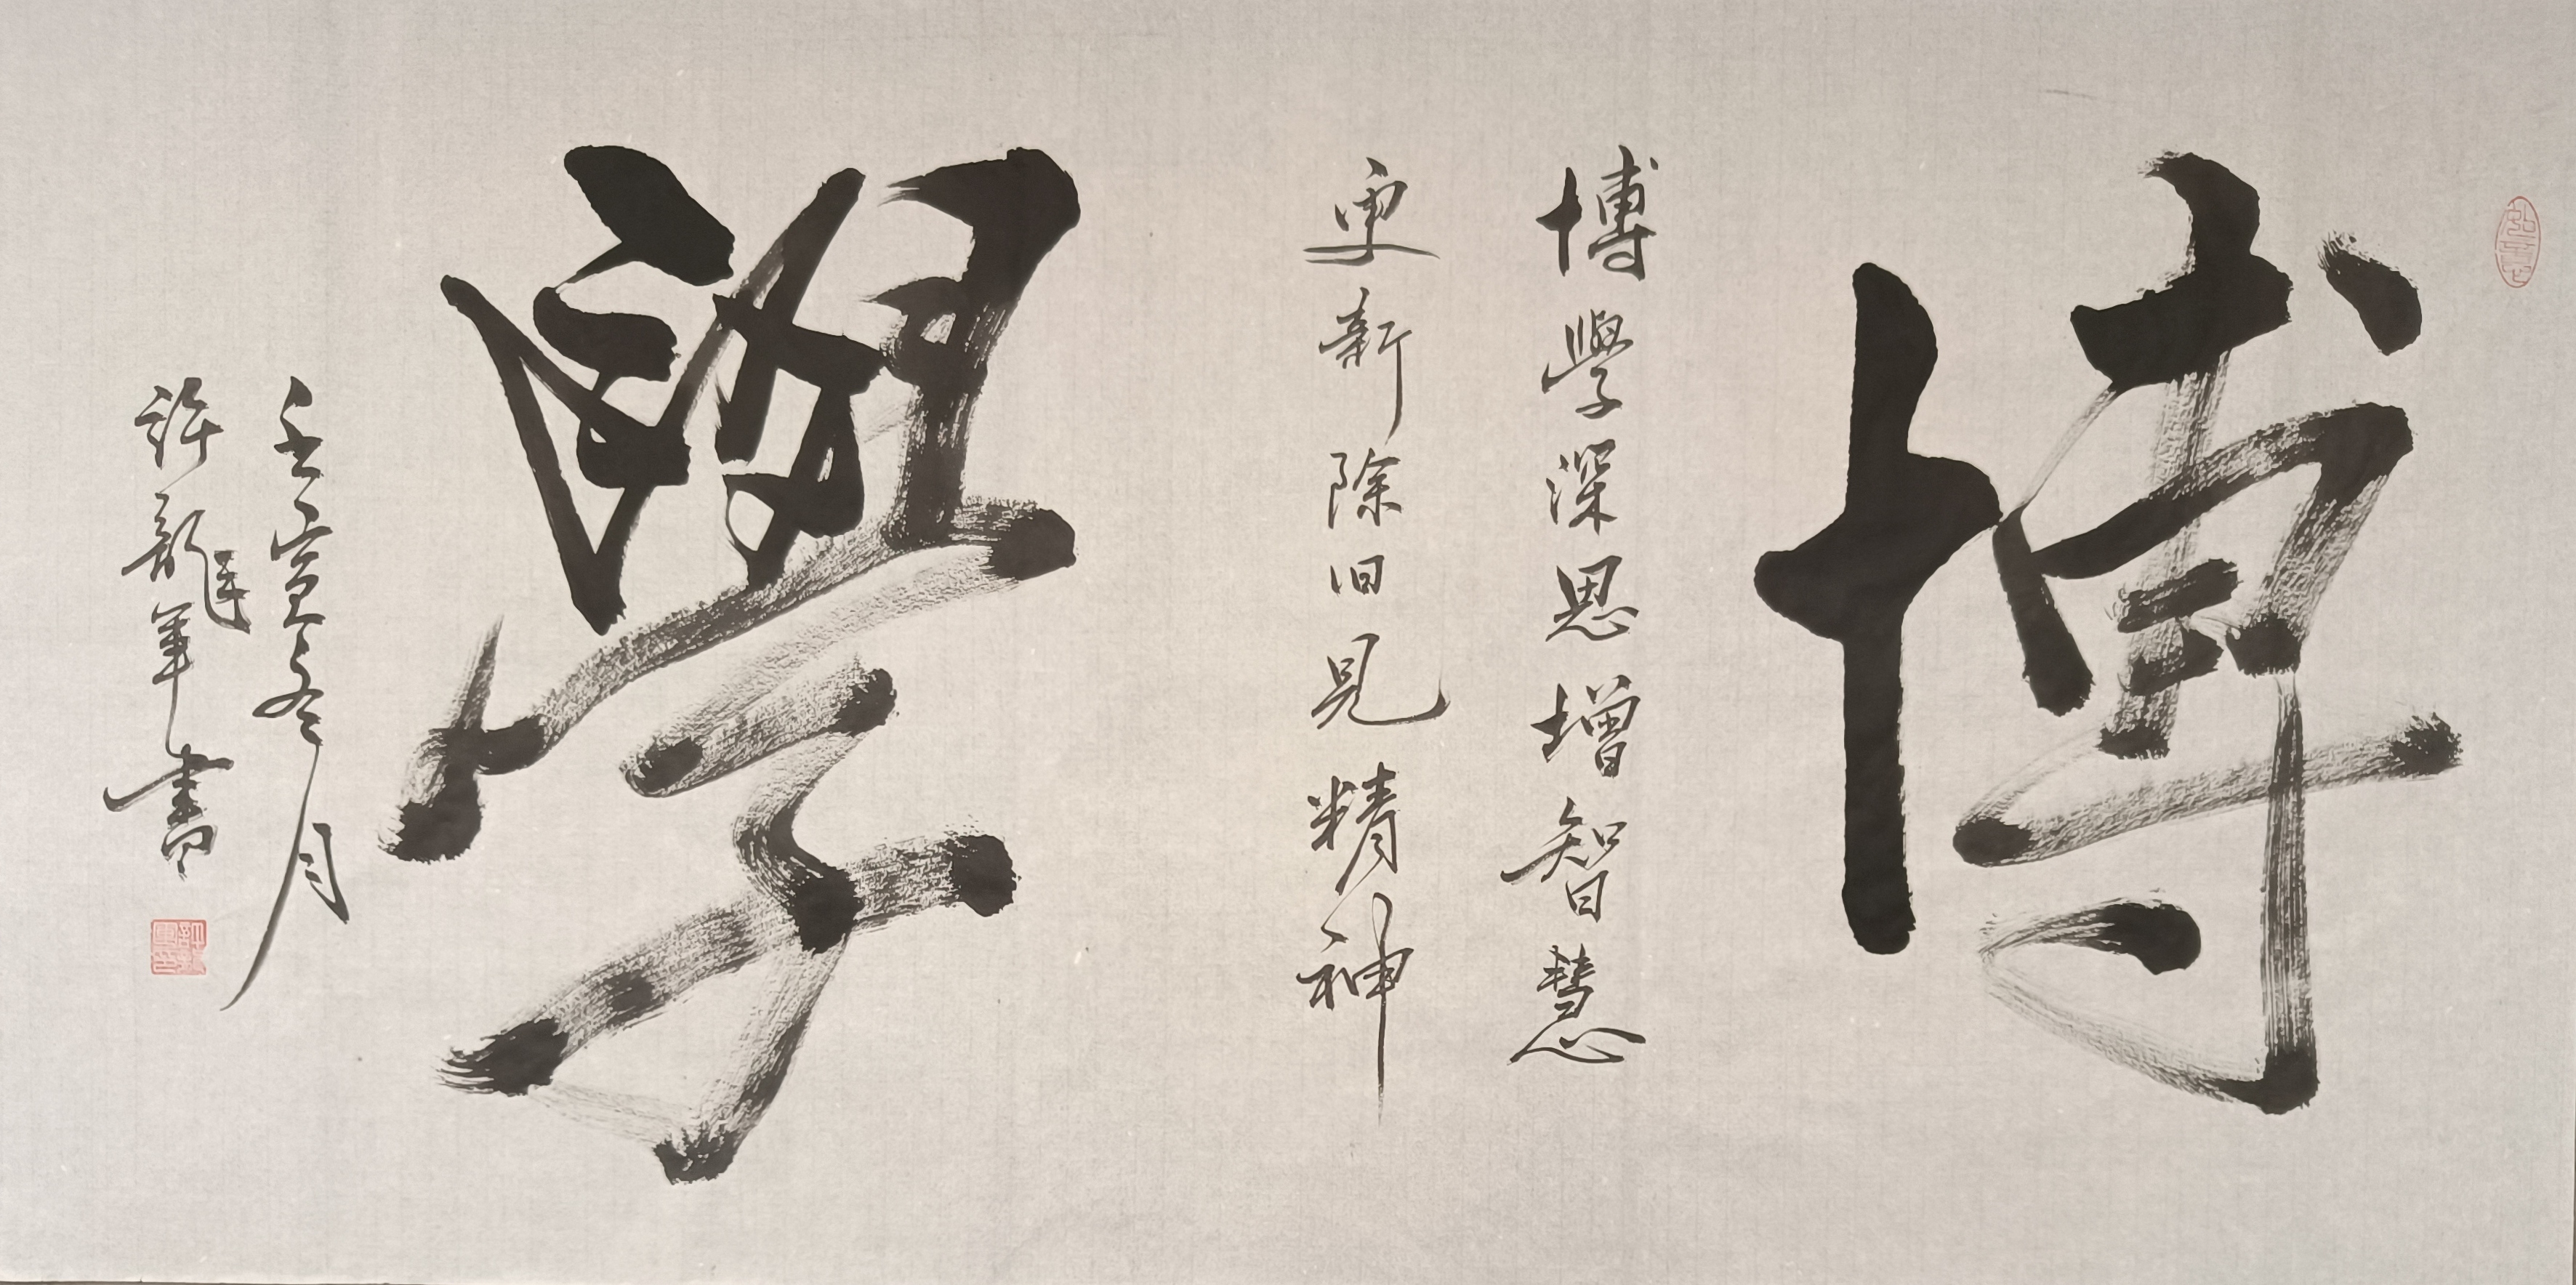 博
博學深思增智慧
更新除旧見精神
學
壬寅冬月
許龍軍書